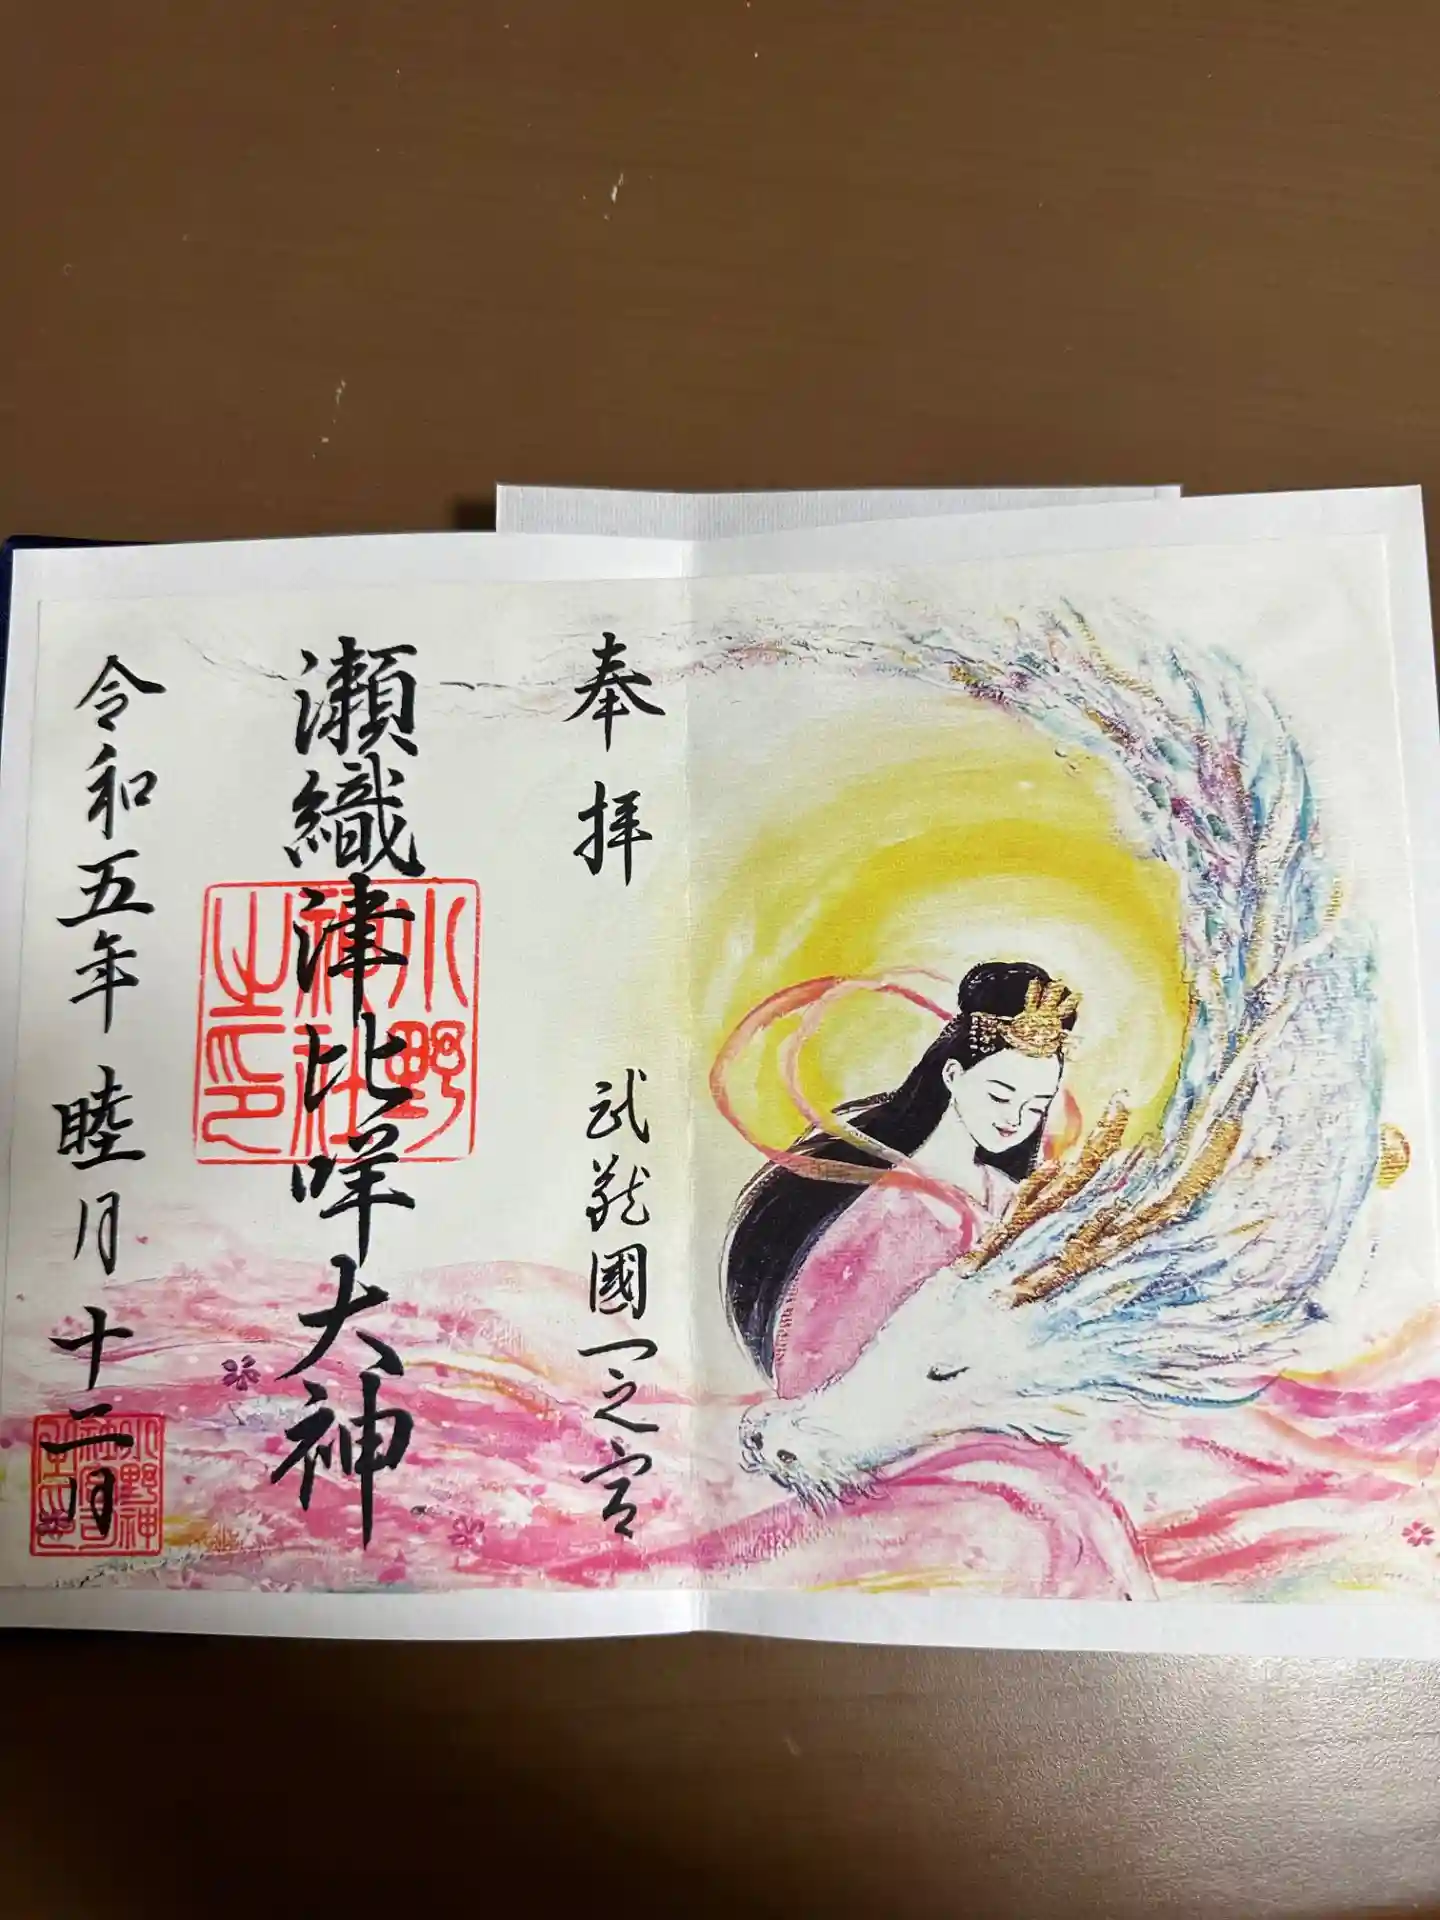 奉拝
武蔵國一之宮
瀨織津比咩大神
小野神社之印
令和五年 睦月 十二日